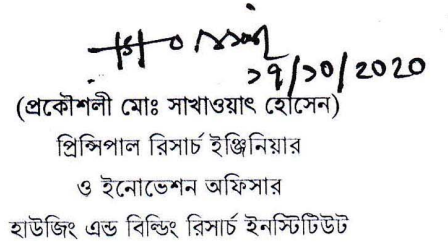 ১৭/১০/2020
(প্রকৌশলী মোঃ সাখাওয়াৎ হোসেন)
প্রিন্সিপাল রিসার্চ ইঞ্জিনিয়ার
ও ইনোভেশন অফিসার
হাউজিং এন্ড বিল্ডিং রিসার্চ ইনস্টিটিউট